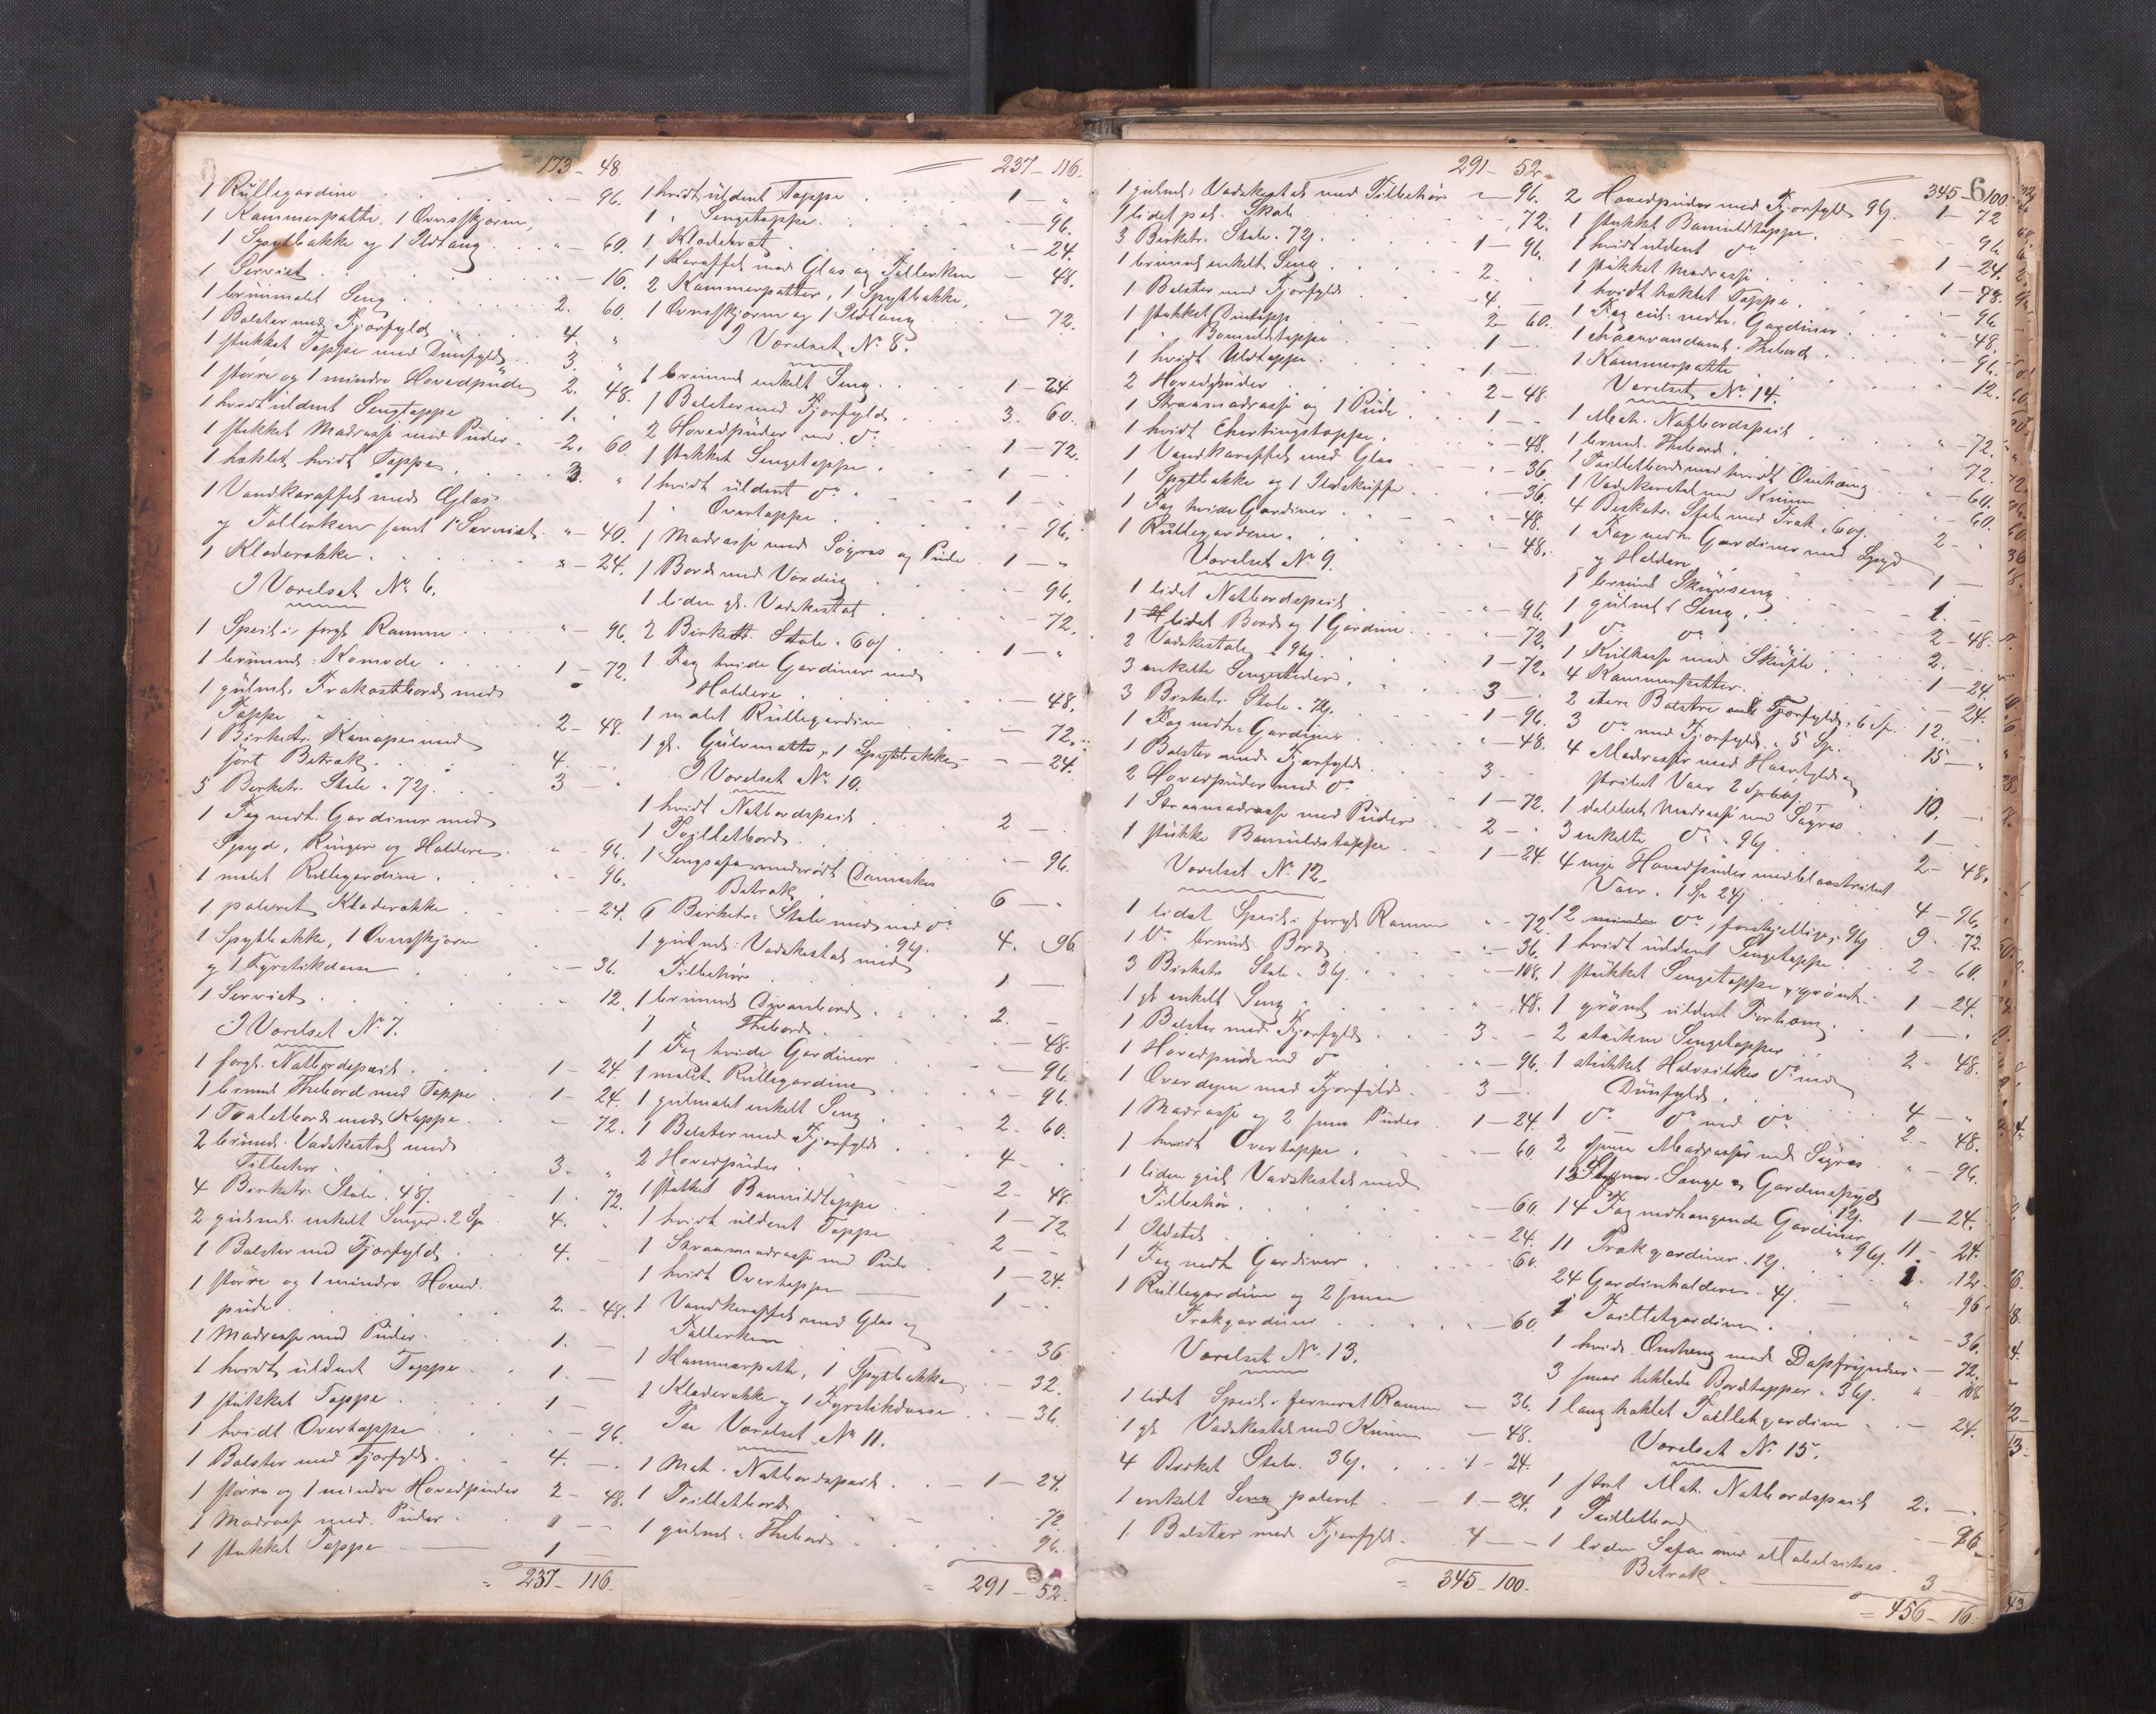 173 - 48
1 Rullegardin . . . " - 96.
1 Kammerpotte. 1 Ovnsskjærm,
1 Spyttbakke og 1 Ildtang . . " - 60.
1 Serviet . . . - 16.
1 brunmalet Seng . . 2. 60.
1 Bolster med Fjærfyld . 4. "
1 stukket Teppe med Dunfyld . 3. "
1 større og 1 mindre Hovedpude 2. 48.
1 hvidt uldent Sengteppe . 1. "
1 stukket Madrasse med Puder . 2. 60.
1 heklet hvidt Teppe . . 3. "
1 Vandkaraffel med Glas
og Tallerken samt 1 Serviet . " - 40.
1 Klæderække . . " - 24.
I Værelset No 6.
1 Speil i forgt Ramme . . " - 96.
1 brunmd: Komode . . 1 - 72.
1 gulmd. Frokostbord med
Teppe . . 2 - 48.
1 Birketr. Kanape med
sort Betræk . . 4. -
5 Birketr. Stole a 72 s. . 3 - "
1 Fag nedh. Gardiner med
Spyd, Ringer og Holdere . " - 96.
1 malet Rullegardin . . - 96.
1 poleret Klæderække . . - 24.
1 Spyttbakke, 1 Ovnsskjærm
og 1 Fyrstikdaase . . - 36.
1 Serviet . . " 12.
I Værelset No 7.
1 forgt. Natbordspeil . . 1 - 24.
1 brunmt Thebord med Teppe . 1 - 24.
1 Toaletbord med Kappe . . - 72.
2 brunmd. Vadskestol med
Tilbehør . . 3. "
4 Birketr. Stole a 48 s. . 1. 72.
2 gulmd. enkelt Senger a 2 Sp 4. "
1 Bolster med Fjærfyld . 4. -
1 større og 1 mindre Hoved-
pude . . 2. - 48.
1 Madrasse med Puder . 1. -
1 hvidt uldent Teppe . . 1. -
1 stukket Teppe . . 1 -
1 hvidt Overteppe . . - 96.
1 Bolster med Fjærfyld . . 4. -
1 større og 1 mindre Hovedpuder 2 - 48.
1 Madrasse med Puder . 1 - -
1 stukket Teppe . 1 -
= 237 - 116.
237 - 116.
1 hvidt uldent Teppe . . 1 - "
1 " Sengeteppe . . - 96.
1 Klædetræt . . " - 24.
1 Karaffel med Glas og Tallerken - 48.
2 Kammerpotter, 1 Spyttbakke,
1 Ovnsskjærm og 1 Ildtang . - 72.
I Værelset No 8.
1 brunmd enkelt Seng . . 1 - 24
1 Bolster med Fjærfyld . 3. 60.
2 Hovedpuder med do . 1 - 72.
1 stukket Sengeteppe . . 1 -
1 hvidt uldent do . . 1 -
1 " Overteppe . . - 96.
1 Madrasse med Søgræs og Pude 1 - "
1 Bord med Voxdug . . 96.
1 liden gl. Vadskestol . . - 72.
2 Birketr. Stole a 60 s . . 1 - "
1 Fag hvide Gardiner med
Holdere . . - 48.
1 malet Rullegardin . - 72.
1 gl. Gulvmatte, 1 Spyttbakke - 24.
I Værelset No 10.
1 hvidt Natbordspeil . . 2 - .
1 Toilletbord . . - 96.
1 Sengsofa med rødt Damaskes
Betræk . . 6 - "
6 Birketr: Stole med do
a 96 s. 4. 96
1 gulmd: Vadskestol med
Tilbehør . . 1 -
1 brunmd Divanbord . . 2. -
1 " Thebord . . - 48.
1 Fag hvide Gardiner . - 96.
1 malet Rullegardin . " - 96.
1 gulmalet enkelt Seng . 2. 60.
1 Bolster med Fjærfyld . . 4 - .
2 Hovedpuder . . 2 - 48.
1 stukket Bomuldsteppe . 1 - 72.
1 hvidt uldent Teppe . . 2 - -
1 Straamadrasse med Pude . 1 - 24.
1 hvidt Overteppe . 1 - .
1 Vandkaraffel med Glas og
Tallerken . . 36
1 Kammerpotte, 1 Spyttbakke . - 32.
1 Klæderække og 1 Fyrstikdaase . - 36.
Paa Værelset No 11.
1 Mah. Natbordspeil . . - 1 - 24.
1 Toilletbord . . 72.
1 gulmd. Thebord . . 96.
= 291 - 52.
291 - 52.
1 gulmd: Vadskestol med Tilbehør " - 96.
1 lidet pol. Skab . . " 72.
3 Birketr. Stole a 72 s. . 1 - 96.
1 brunmd enkelt Seng . . 2. .
1 Bolster med Fjærfyld . - 4. -
1 stukket Dunteppe . . 2 - 60.
1 " Bomuldsteppe . . 1 - .
1 hvidt Uldteppe . . 1 -
2 Hovedpuder . . 2 - 48.
1 Straamadrasse og 1 Pude . 1 - .
1 hvidt Shertingsteppe . . " - 48.
1 Vandkaraffel med Glas . " - 36.
1 Spyttbakke og 1 Ildskuffe . " - 36.
1 Fag hvide Gardiner . . - 48.
1 Rullegardin . . - 48.
Værelset No 9.
1 lidet Natbordspeil . . " - 96.
1 lidet Bord og 1 Gardin . . " 72.
2 Vadskestole a 96 s. . 1 - 72.
3 enkelte Sengesteder . . 3 -
3 Birketr. Stole a 72 s. . 1 - 96.
1 Fag nedh. Gardiner . . " - 48.
1 Bolster med Fjærfyld . . 3 -
2 Hovedpuder med do . . 1 - 72.
1 Straamadrasse med Puder . 2 - .
1 stukket Bomuldsteppe . . 1 - 24.
Værelset No 12.
1 lidet Speil i forgt Ramme " - 72.
1 do brunmd Bord . . " - 36.
3 Birketr. Stole a 36 s. . - 108.
1 gl enkelt Seng . . " - 48.
1 Bolster med Fjærfyld . . 3 - .
1 Hovedpude med do . . " - 96.
1 Overdyne med Fjærfyld . 3 -
1 Madrasse og 2 smaa Puder . 1 - 24.
1 hvidt Overteppe . . - 60.
1 liden gul Vadskestol med
Tilbehør . . - 60.
1 Ildsted . . - 24.
1 Fag nedh Gardiner . . 60.
1 Rullegardin og 2 smaa
Trækgardiner . . - 60.
Værelset No 13.
1 lidet Speil i ferneret Ramme - 36.
1 gl Vadskestol med Kumme - 48.
4 Birket Stole a 36 s. . . 1 - 24.
1 enkelt Seng poleret . - 1 - 24.
1 Bolster med Fjærfyld . 4 - -
= 345 - 100.
345 - 100
6
2 Hovedpuder med Fjærfyld a 96 s. 1 - 72
1 stukket Bomuldsteppe . . 96
1 hvidt uldent do . . 1 - 24.
1 stukket Madrasse . . 1 - 48.
1 hvidt heklet Teppe . . - 96
1 Fag nedh. Gardiner . . 48.
1 Thebord . . - 96.
1 Kammerpotte . . - 12.
Værelset No 14.
1 Mah. Natbordspeil . . " - 72.
1 brunmd. Thebord . . 72.
1 Toilletbord med hvidt Omhæng . " - 60.
1 Vadskestol med Kumme . - 60.
4 Birketr. Stole med Træk a 60 s. . 2 - "
1 Fag nedh. Gardiner med Spyd
og Holdere . . 1 -
1 brunmd Skuvseng . . 1. -
1 gulmd Seng . . 2 - 48.
1 do do . . 2. -
1 Kulkasse med Skuffe . . 1 - 24.
4 Kammerpotter . . - 24.
2 store Bolstre med Fjærfyld a 6 Sp. 12. -
3 do med Fjærfyld a 5 Sp. 15 - "
4 Madrasser med Haarfyld og
stribet Vaar a 2 Sp 60 s. 10. -
1 dobbelt Madrasse med Søgræs . 1 - .
3 enkelte do a 96 s. . 2 - 48.
4 nye Hovedpuder med blaastribet
Vaar a 1 Sp 24 s . 4 - 96.
12 mindre do forskjellige a 96 s 9. 72
1 hvidt uldent Sengeteppe . 2 - 60.
1 stukket Sengeteppe, grønt . 1 - 24.
1 grønt uldent Forhæng . 1 - .
2 Sengetepper . . 2 - 48.
1 stukket Halvsilkes do med
Dunfyld . . 4 - "
1 do do med do . . 2 - 48.
2 smaa Madrasser med Søgræs . " - 96.
Senge og Gardinspyd
a 12 s. 1 - 24.
14 Fag nedhængende Gardiner
a 96 s. 11 - 24.
11 Trækgardiner a 12 s. . 1. 12.
24 Gardinholdere a 4 s. - " 96
1 Toilletgardin . . " - 36.
1 hvidt Omhæng med . - 72.
3 smaa heklede Bordtepper a 36 s. " 108
1 lang heklet Toilletgardin . - 24.
Værelset No 15.
1 stort Mah. Natbordspeil 2. -
1 Toilletbord . . - 96.
1 liden Sofa med
Betræk . 3 -
= 456 - 16.